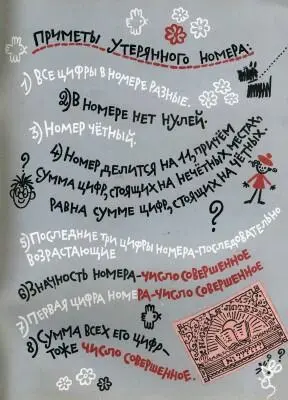 ПРИМЕТЫ УТЕРЯННОГО НОМЕРА:
1) ВСЕ ЦИФРЫ В НОМЕРЕ РАЗНЫЕ.
2) В НОМЕРЕ НЕТ НУЛЕЙ.
3) НОМЕР ЧЁТНЫЙ.
4) НОМЕР ДЕЛИТСЯ НА 11, ПРИЧЁМ
СУММА ЦИФР, СТОЯЩИХ НА НЕЧЁТНЫХ МЕСТАХ,
РАВНА СУММЕ ЦИФР, СТОЯЩИХ НА ЧЁТНЫХ.
?
?
5) ПОСЛЕДНИЕ ТРИ ЦИФРЫ НОМЕРА-ПОСЛЕДОВАТЕЛЬНО
ВОЗРАСТАЮЩИЕ
6) ЗНАЧНОСТЬ НОМЕРА-ЧИСЛО СОВЕРШЕННОЕ
7) ПЕРВАЯ ЦИФРА НОМЕРА-ЧИСЛО СОВЕРШЕННОЕ
8) СУММА ВСЕХ ЕГО ЦИФР-
ТОЖЕ ЧИСЛО СОВЕРШЕННОЕ.